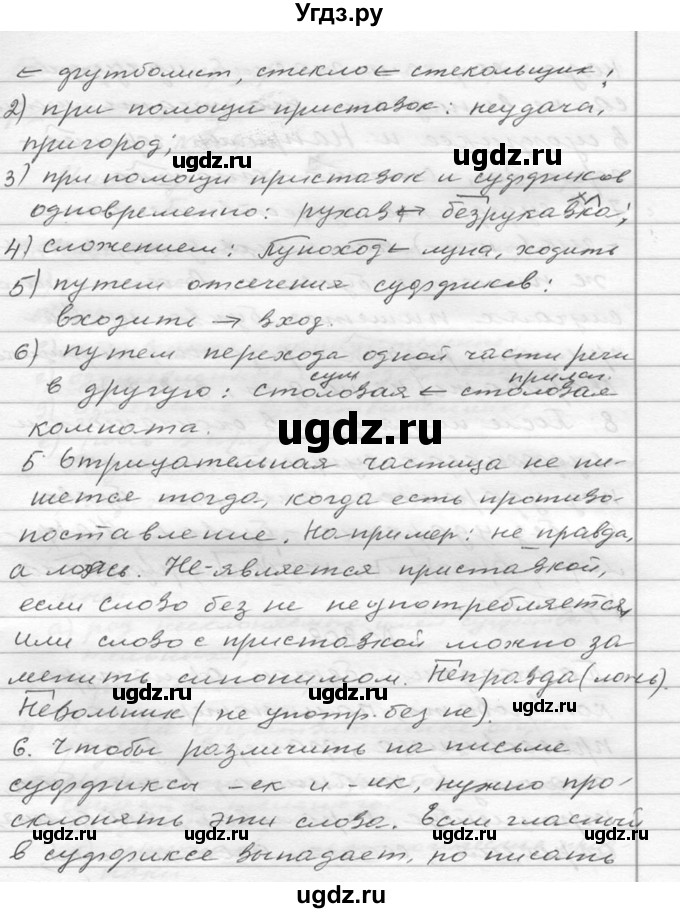 Угдз.ру
← футболист, стекло ← стекольщик;
2) при помощи приставок: неудача,
пригород;
ugdz.ru ugdz.ru
3) при помощи приставок и суффиксов
одновременно: рукав ↔ безрукавка;
4) сложением: луноход ← луна, ходить
5) путем отсечения суффиксов:
входить → вход.
6) путем перехода одной части речи
сущ прилаг
в другую: столовая ← столовая
комната.
ugdz.ru
5 Отрицательная частица не пи-
шется тогда, когда есть противо-
поставление. Например: не правда,
а ложь. Не-является приставкой,
если слово без не не употребляется,
или слово с приставкой можно за
менить синонимом. Неправда (ложь).
ugdz.ru ugdz.ru
Невольник (не употр. без не).
6. Чтобы различить на письме
суффиксы -ек и -ик, нужно про-
склонять эти слова. Если гласный
ugdz.ru ugdz.ru
в суффиксе выпадает, то писать
ugdz.ru